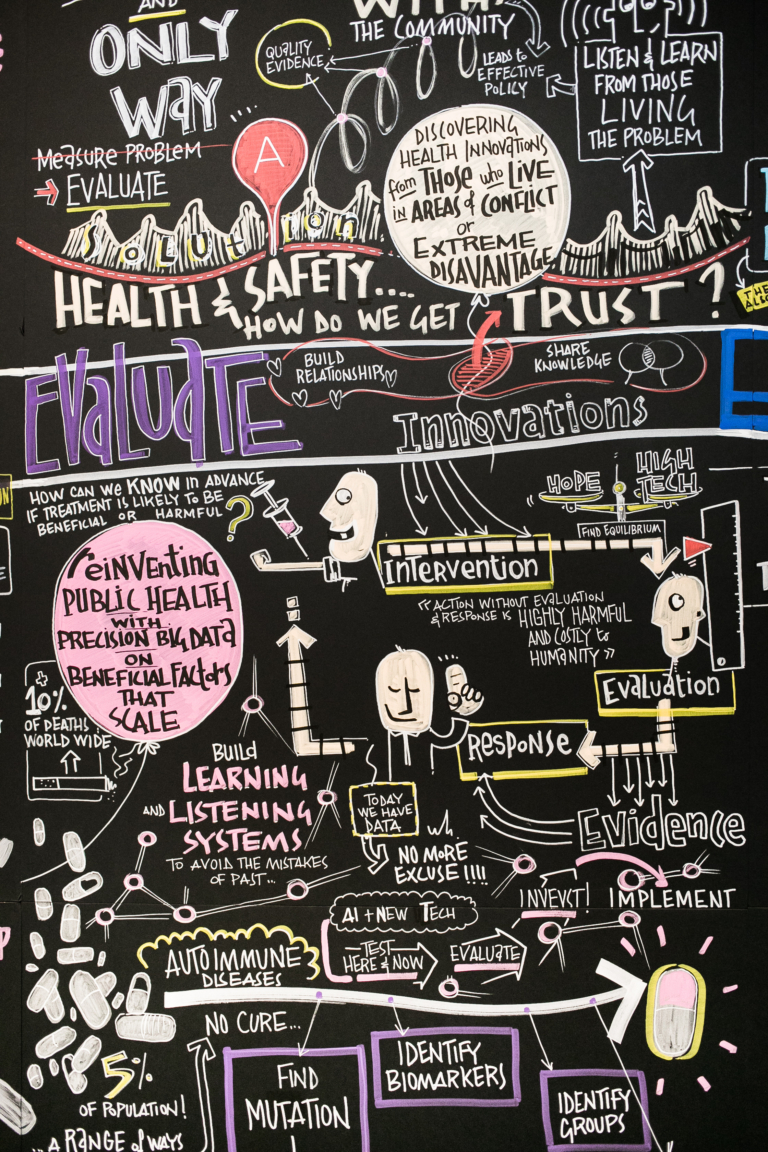 AND
ONLY
WAY
WITH
THE COMMUNITY
QUALITY
EVIDENCE
LEADS to
EFFECTIVE
POLICY
LISTEN & LEARN
FROM THOSE
LIVING
THE PROBLEM
MEASURE PROBLEM
EVALUATE
A
DISCOVERING
HEALTH INNOVATIONS
from THOSE who LIVE
iN AREAS of CONFLICT
or
EXTREME
DISAVANTAGE
SOLUTION
HEALTH & SAFETY....
HOW DO WE GET TRUST?
THE
EVALUATE
BUILD
RELATIONSHIPS
SHARE
KNOWLEDGE
Innovations
HOW CAN WE KNOW IN ADVANCE
IF TREATMENT IS LIKELY TO BE
BENEFICIAL OR HARMFUL ?
HOPE
HIGH
TECH
FIND EQUILIBRIUM
INTERVENTION
"ACTION WITHOUT EVALUATION
& RESPONSE IS HIGHLY HARMFUL
AND COSTLY to
HUMANITY"
reiNVENTiNG
PUBLIC HEALTH
WITH
PRECISION BIG DATA
ON
BENEFICIAL FACTORS
THAT
SCALE
10%
OF DEATHS
WORLD WIDE
EVALUATION
RESPONSE
BUILD
LEARNING
AND LISTENING
SYSTEMS
TO AVOID THE MISTAKES
OF PAST...
TODAY
WE HAVE
DATA
NO MORE
EXCUSE !!!!
Evidence
INVEST!
IMPLEMENT
AI + NEW TECH
TEST
HERE & NOW
EVALUATE
AUTOIMMUNE
DISEASES
NO CURE...
5%
OF POPULATION!
...A RANGE of WAYS
FIND
MUTATION
IDENTIFY
BIOMARKERS
IDENTIFY
GROUPS